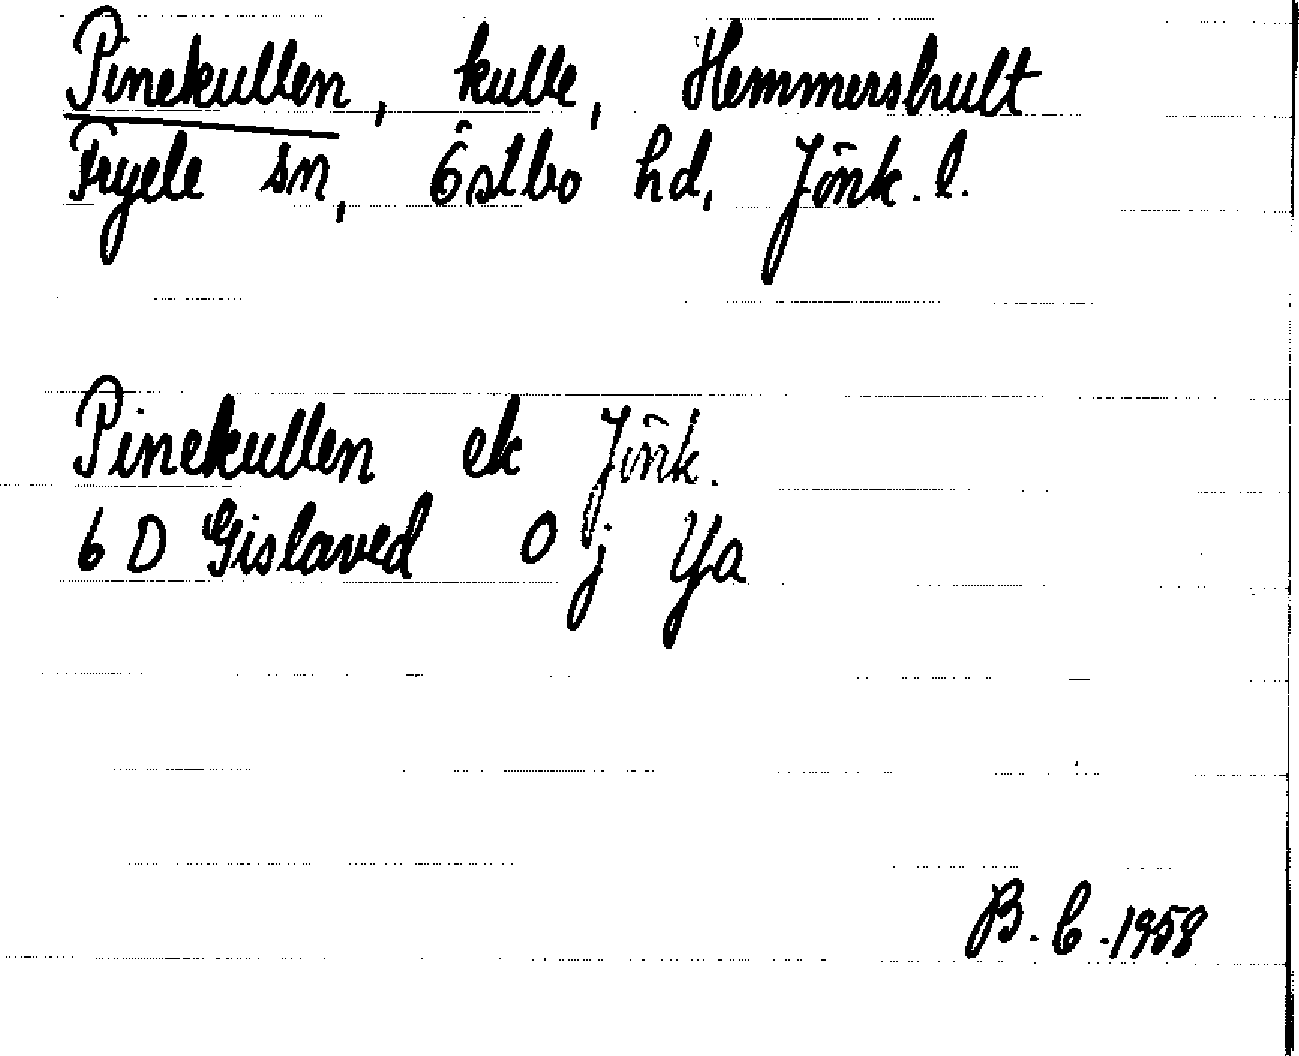 Pinekullen, kulle, Hemmershult
Fryele sn, Östbo hd, Jönk. l.
Pinekullen ek Jönk.
6 D Gislaved O j Ya
B. C. 1958